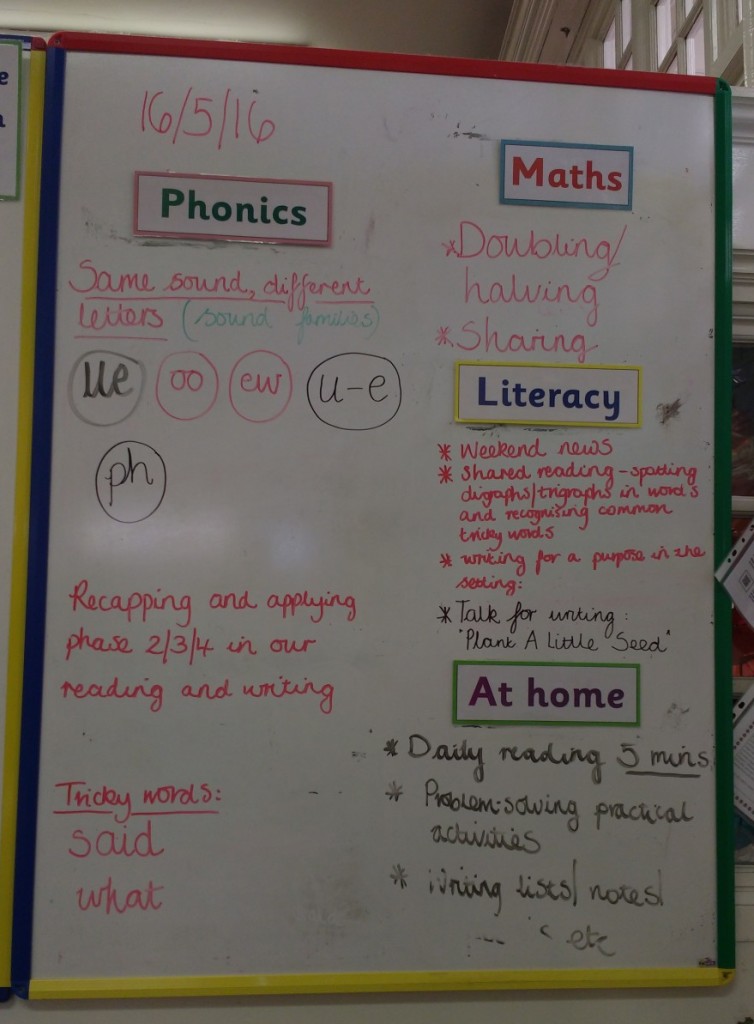 e
16/5/16
Phonics
Same sound, different
letters (sound families)
ue oo ew u-e
ph
Recapping and applying
phase 2/3/4 in our
reading and writing
Tricky words:
said
what
Maths
*Doubling/
halving
*Sharing
Literacy
* Weekend news
* Shared reading - spotting
digraphs/trigraphs in words
and recognising common
tricky words
* writing for a purpose in the
setting:
* Talk for writing:
"Plant A Little Seed"
At home
* Daily reading 5 mins
* Problem-solving practical
activities
* Writing lists/ notes/
etc